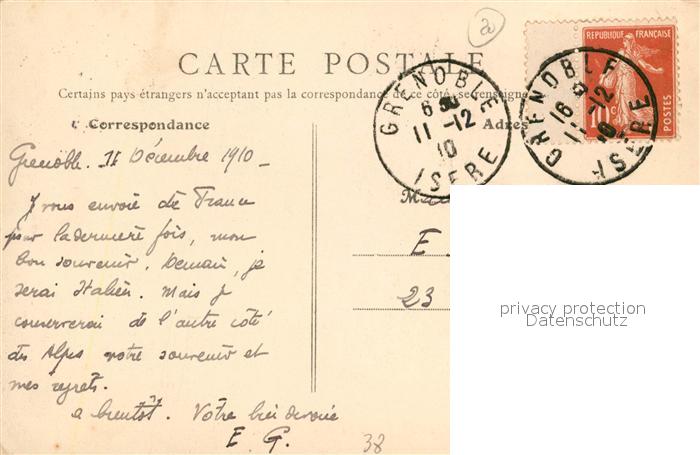 CARTE POSTALE
Certains pays étrangers n'acceptant pas la correspondance de ce côté, se renseigner
Correspondance
Adres
REPUBLIQUE FRANÇAISE
10c
POSTES
GRENOBLE
6
11-12
10
ISERE
GRENOBLE
16
11-12
10
ISERE
Grenoble. 11 Décembre 1910_
Je vous envoie de France
pour la dernière fois, mon
bon souvenir. Demain, je
serai Italien. Mais je
conserverai de l'autre côté
des Alpes votre souvenir et
mes regrets.
a bientôt. Votre bien dévoué
E. G.
38
E
23
privacy protection
Datenschutz